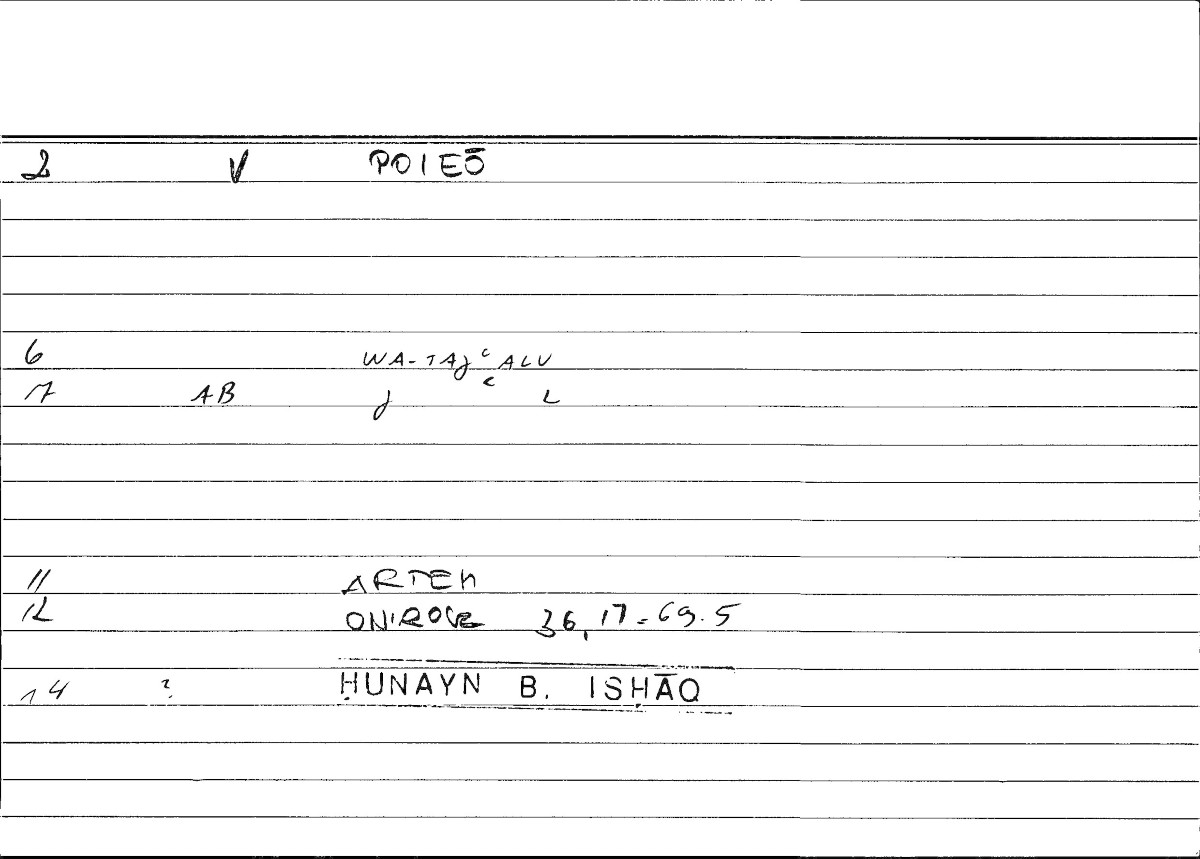 2 V POIEŌ
6 WA-TAJʿALU
7 AB J ʿ L
11 ARTEM
12 ONIROCR 36,17=69.5
14 ? ḤUNAYN B. ISḤĀQ